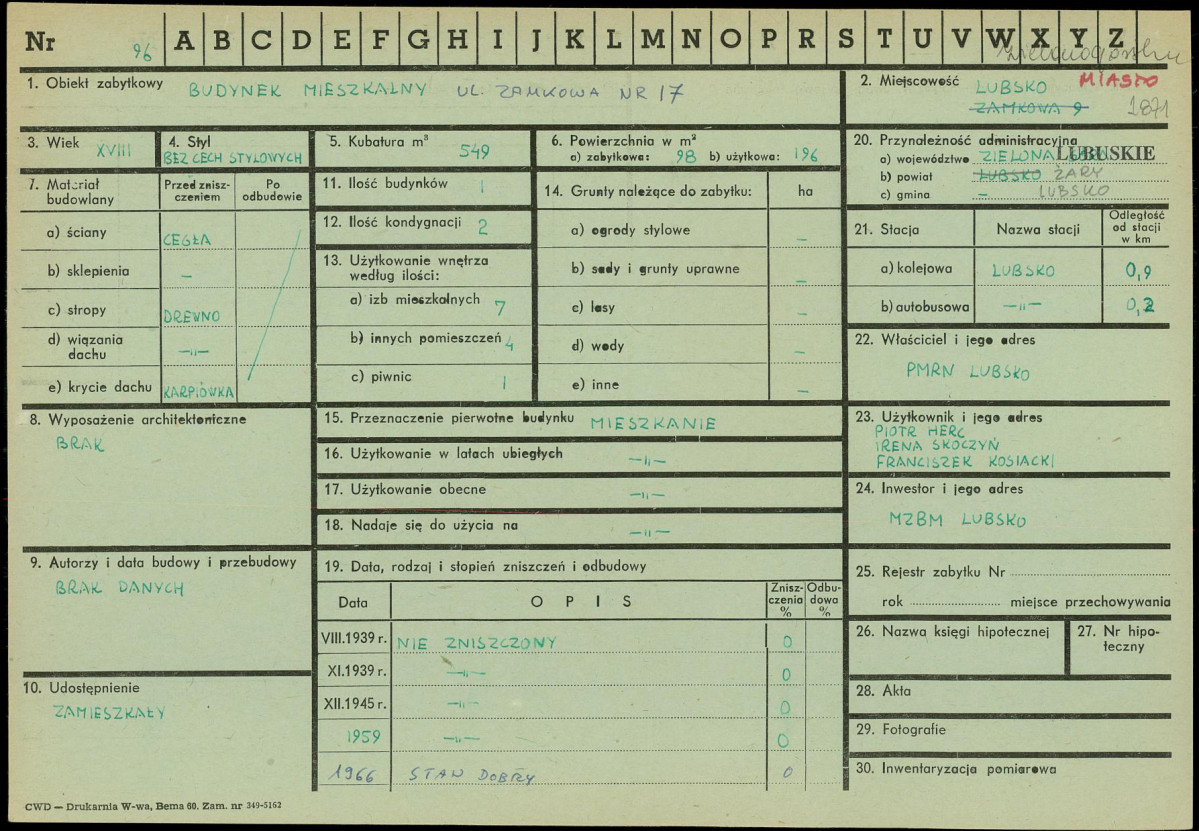 Nr 96 A B C D E F G H I J K L M N O P R S T U V W X Y Z
1. Obiekt zabytkowy BUDYNEK MIESZKALNY UL. ZAMKOWA NR 17
2. Miejscowość LUBSKO MIASTO
ZAMKOWA 9 1871
3. Wiek XVIII
4. Styl
BEZ CECH STYLOWYCH
5. Kubatura m³ 549
6. Powierzchnia w m²
a) zabytkowa: 98 b) użytkowa: 196
20. Przynależność administracyjna
a) województwo ZIELONA LUBUSKIE
b) powiat LUBSKO ŻARY
c) gmina – LUBSKO
7. Materiał budowlany
Przed zniszczeniem
Po odbudowie
a) ściany CEGŁA
b) sklepienia –
c) stropy DREWNO
d) wiązania dachu –„–
e) krycie dachu KARPIÓWKA
11. Ilość budynków 1
12. Ilość kondygnacji 2
13. Użytkowanie wnętrza
według ilości:
a) izb mieszkalnych 7
b) innych pomieszczeń 4
c) piwnic 1
14. Grunty należące do zabytku: ha
a) ogrody stylowe –
b) sady i grunty uprawne –
c) lasy –
d) wody –
e) inne –
21. Stacja Nazwa stacji Odległość od stacji w km
a) kolejowa LUBSKO 0,9
b) autobusowa –„– 0,2
22. Właściciel i jego adres
PMRN LUBSKO
8. Wyposażenie architektoniczne
BRAK
15. Przeznaczenie pierwotne budynku MIESZKANIE
16. Użytkowanie w latach ubiegłych –„–
17. Użytkowanie obecne –„–
18. Nadaje się do użycia na –„–
23. Użytkownik i jego adres
PIOTR HERC
IRENA SKOCZYŃ
FRANCISZEK KOSIACKI
24. Inwestor i jego adres
MZBM LUBSKO
9. Autorzy i data budowy i przebudowy
BRAK DANYCH
10. Udostępnienie
ZAMIESZKAŁY
19. Data, rodzaj i stopień zniszczeń i odbudowy
Data OPIS Zniszczenia % Odbudowa %
VIII.1939 r. NIE ZNISZCZONY 0
XI.1939 r. –„– 0
XII.1945 r. –„– 0
1959 –„– 0
1966 STAN DOBRY 0
25. Rejestr zabytku Nr
rok miejsce przechowywania
26. Nazwa księgi hipotecznej
27. Nr hipoteczny
28. Akta
29. Fotografie
30. Inwentaryzacja pomiarowa
CWD — Drukarnia W-wa, Bema 60. Zam. nr 349-5162